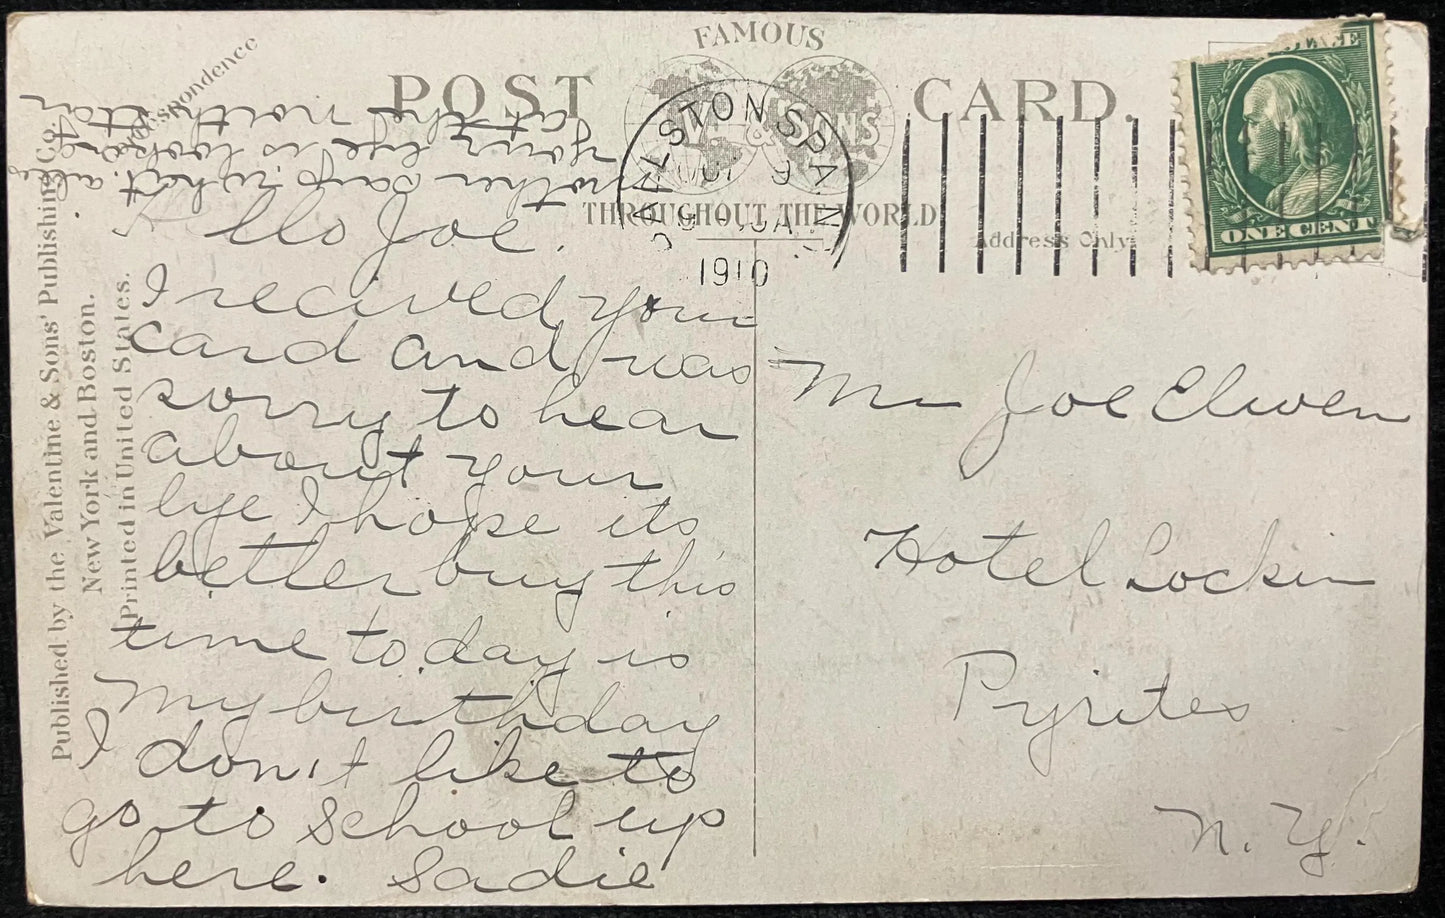 POST CARD.
FAMOUS
& SONS
THROUGHOUT THE WORLD
Correspondence
Address Only.
BALLSTON SPA N.Y.
9
1910
ONE CENT
Published by the Valentine & Sons' Publishing Co.
New York and Boston.
Printed in United States.
Hello Joe.
I recived your
card and was
sorry to hear
about your
lye I hope its
better buy this
time to day is
My birthday
I don't like to
go to school up
here. Sadie
Mother says
your lye is looked
at the north
Mr Joe Elwen
Hotel Lockin
Pyrites
N. Y.